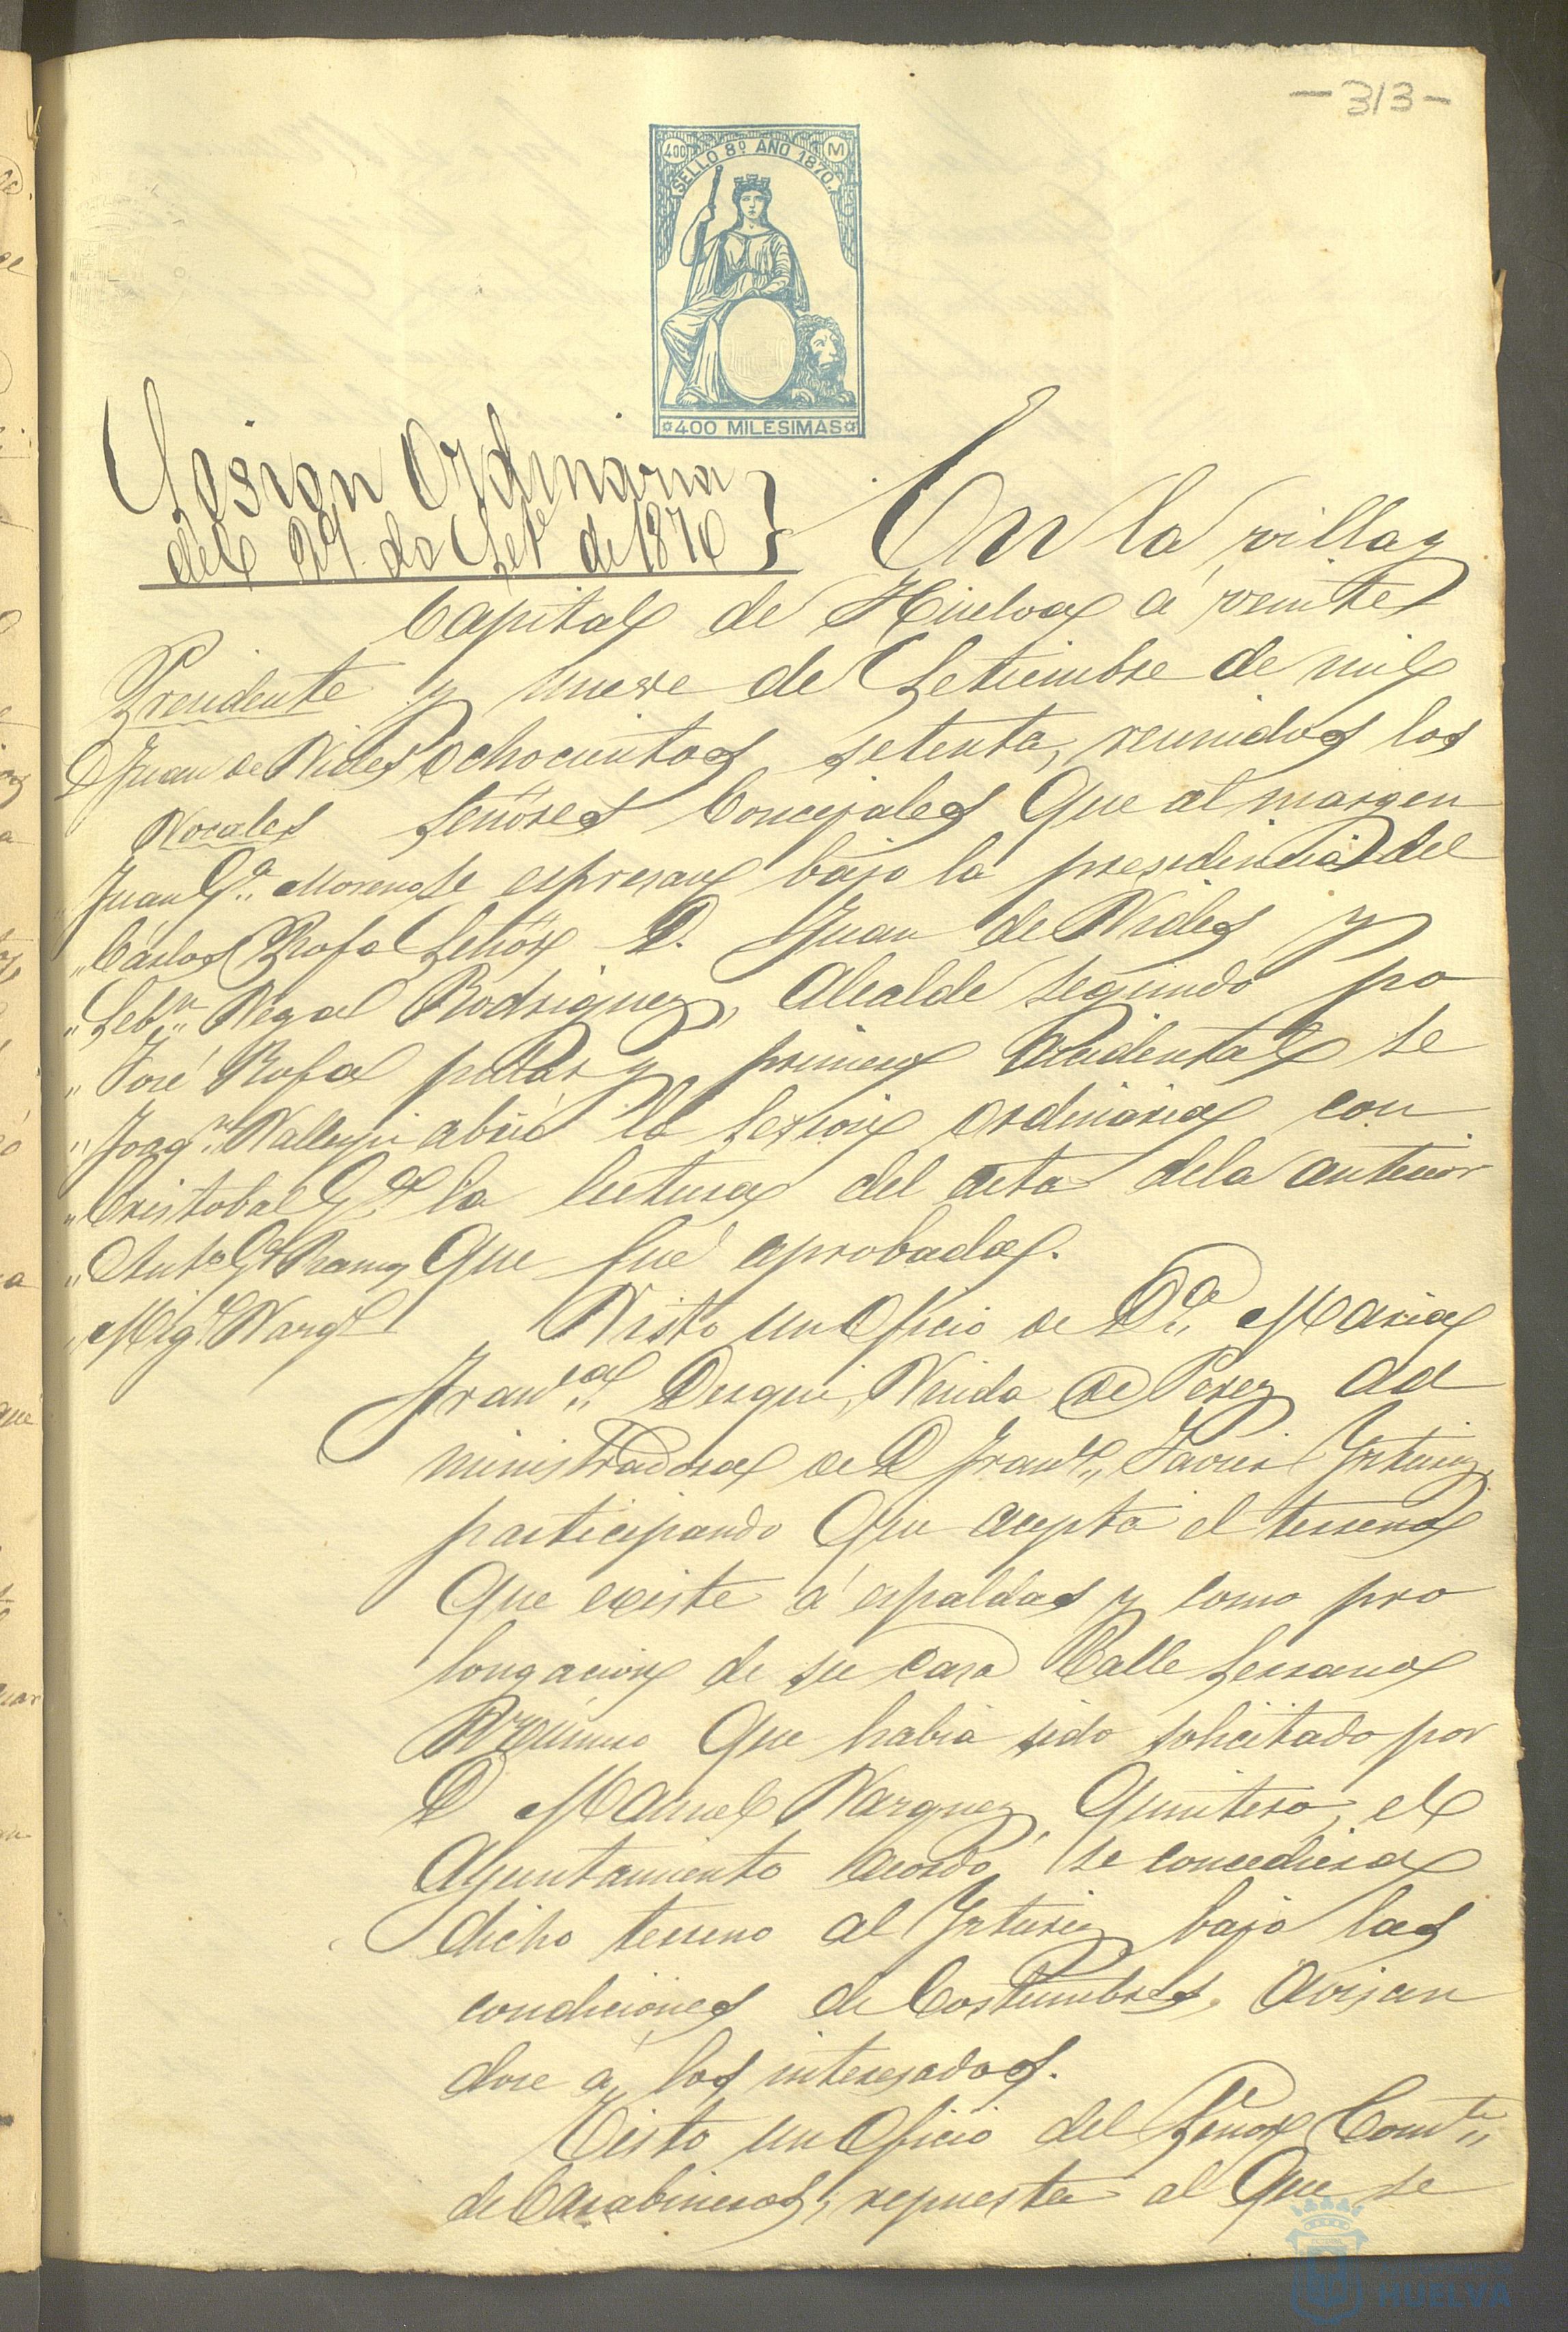 -313-
400 M
SELLO 8º AÑO 1870.
¤400 MILESIMAS¤
Sesion Ordinaria
del 29 de Set.e de 1870
En la villa y
Capital de Huelva á veinte
y nueve de Setiembre de mil
ochocientos setenta, reunidos los
Señores Concejales que al margen
se espresan bajo la presidencia del
Señor D. Juan de Vides y
Rodriguez, Alcalde segundo po
pular y primero accidental se
abrió la sesion ordinaria con
la lectura del acta dela anterior
que fué aprobada.
Presidente
D Juan de Vides
Vocales
" Juan G.a Moreno
" Carlos Rofa
" Seb.n Vega
" José Rofa
" Joaq.n Vallejo
" Cristobal G.a
" Ant.o G.a Ramos
" Mig.l Varg.s
Visto un Oficio de D.a Maria
Fran.ca Duque, Viuda de Perez ad
ministradora de D Fran.co Javier Ysturiz,
participando que acepta el terreno
que existe á espaldas y como pro
longacion de su casa Calle Serrano
número que habia sido solicitado por
D Manuel Vazquez Quintero, el
Ayuntamiento acordó se concediera
dicho terreno al Ysturiz bajo las
condiciones de Costumbres, avisan
dose á los interesados.
Visto un Oficio del Señor Com.te
de Carabineros, repuesta al que se
HUELVA